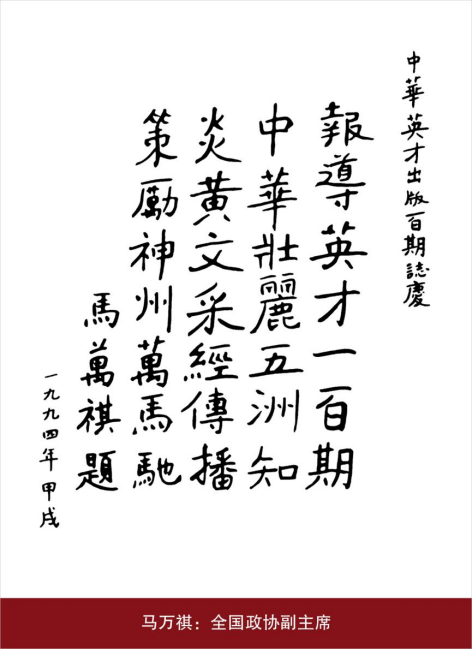 中華英才出版百期誌慶
報導英才一百期
中華壯麗五洲知
炎黃文采經傳播
策勵神州萬馬馳
馬萬祺題
一九九四年甲戌
马万祺：全国政协副主席